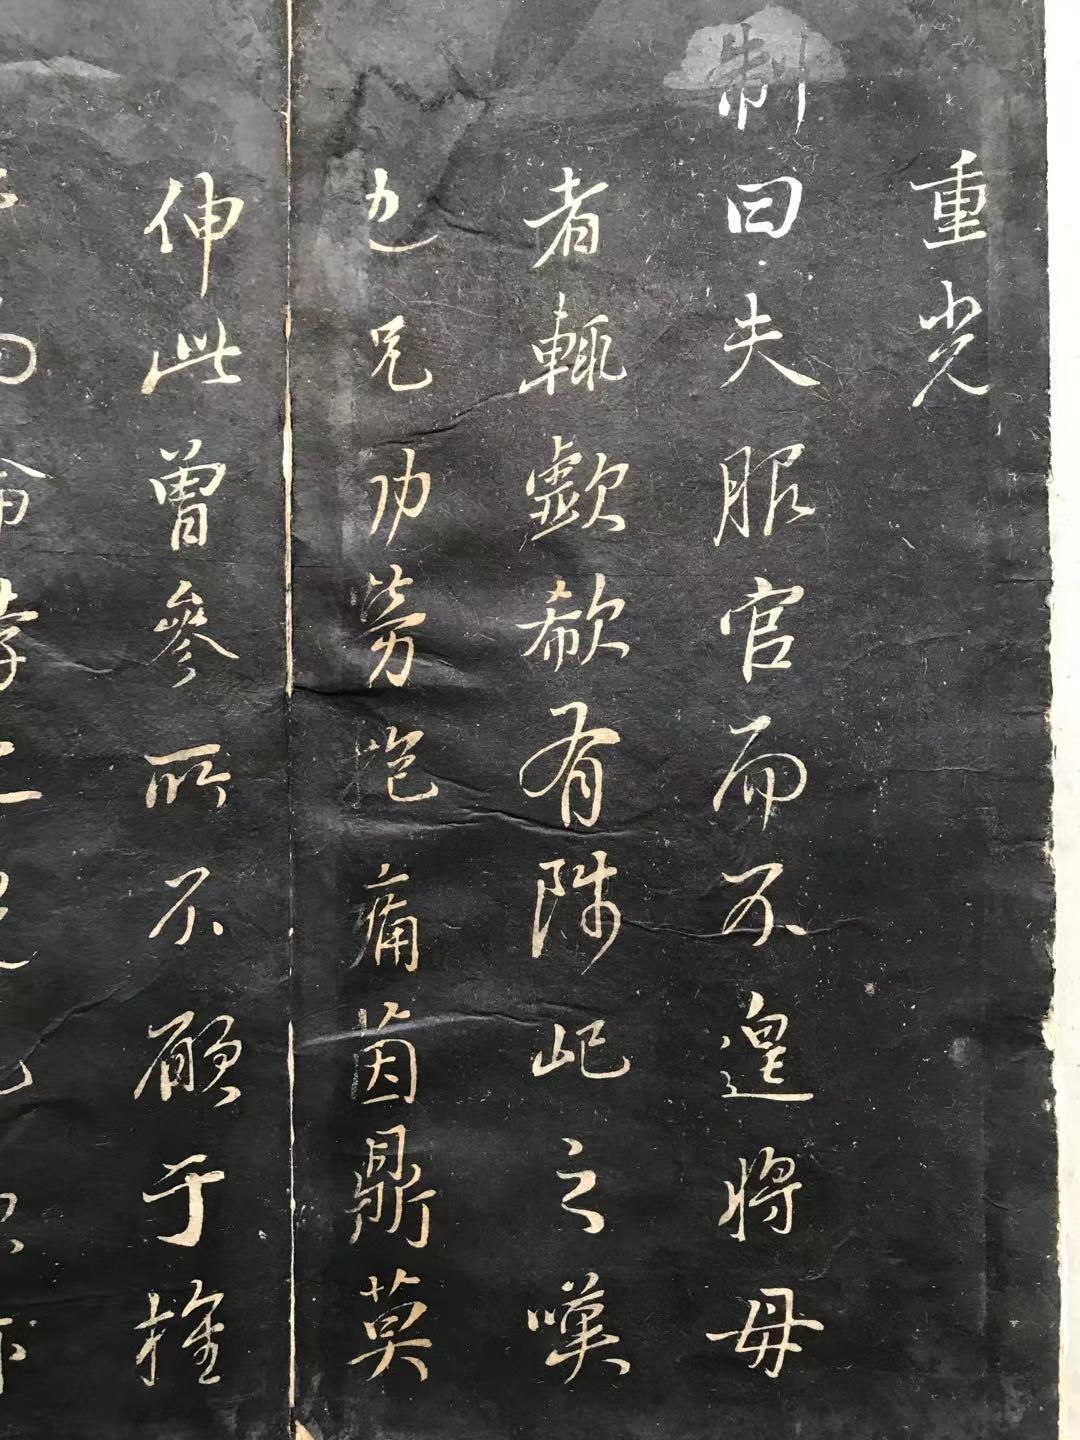 重光
制曰夫服官而不遑將母
者輒歔欷有陟屺之嘆
也况劬勞抱痛茵鼎莫
伸此曾參所不願于椎